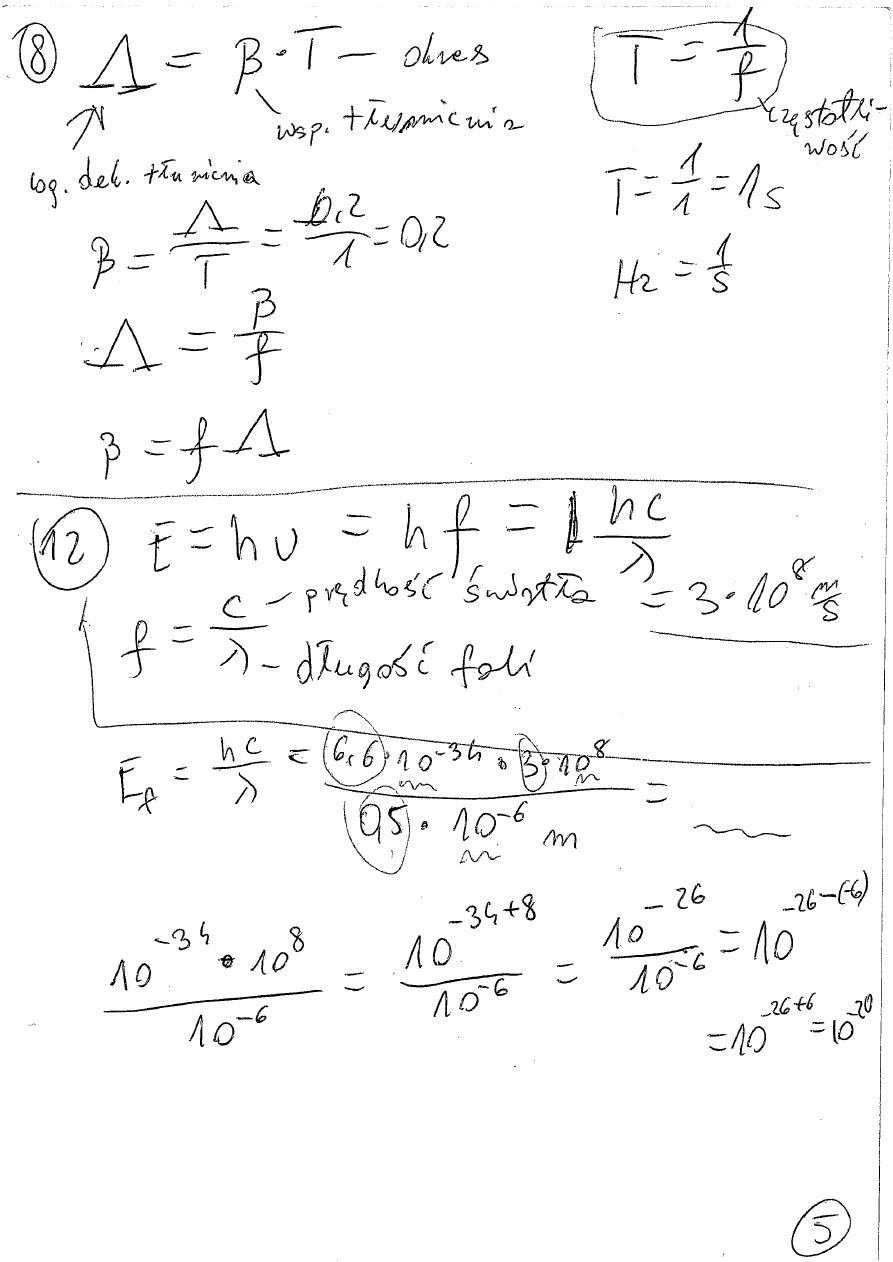 8 Λ = β·T – okres
T = 1/f
wsp. tłumienia
częstotli-
wość
log. dek. tłumienia
T = 1/1 = 1s
β = Λ/T = 0,2/1 = 0,2
Hz = 1/s
Λ = β/f
β = f Λ
12 E = hν = hf = hc/λ
f = c/λ – prędkość światła = 3·10⁸ m/s
λ – długość fali
E_f = hc/λ = 6,6·10⁻³⁴·3·10⁸ / 0,5·10⁻⁶ m =
10⁻³⁴·10⁸ / 10⁻⁶ = 10⁻³⁴⁺⁸ / 10⁻⁶ = 10⁻²⁶ / 10⁻⁶ = 10⁻²⁶⁻⁽⁻⁶⁾
= 10⁻²⁶⁺⁶ = 10⁻²⁰
5